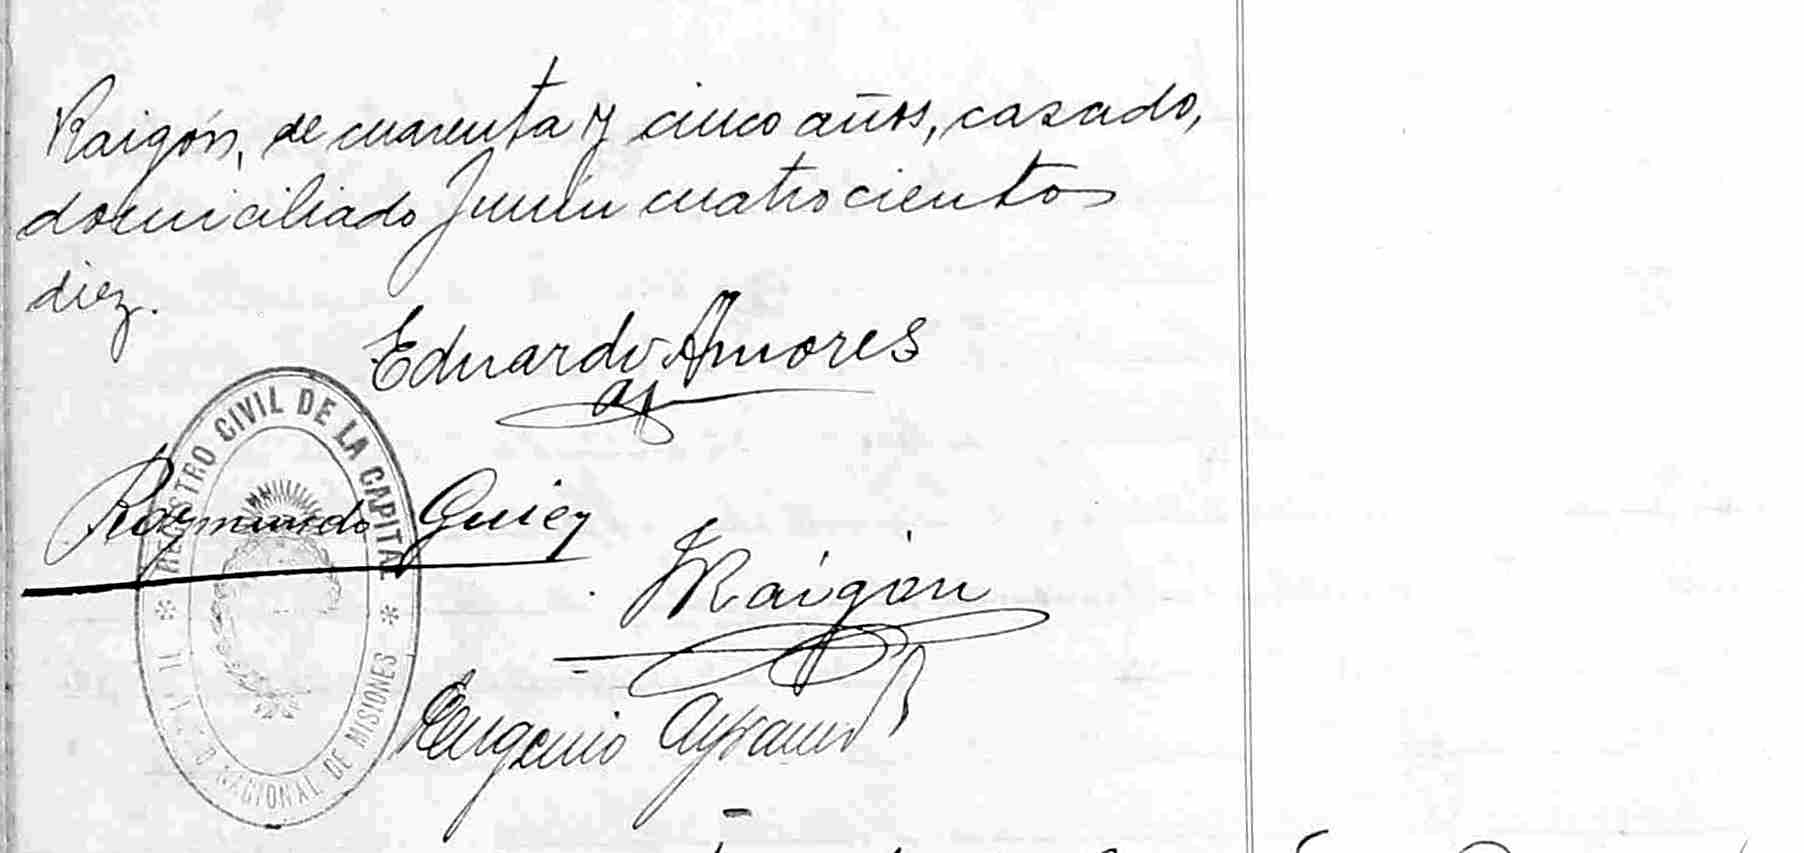 Raigón, de cuarenta y cinco años, casado,
domiciliado Junín cuatrocientos
diez.
Eduardo Amores
REGISTRO CIVIL DE LA CAPITAL
Raymundo
Raigón
Eugenio
NACIONAL DE MISIONES